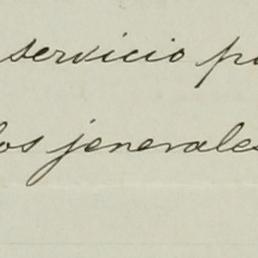 servicio p
los jenerales